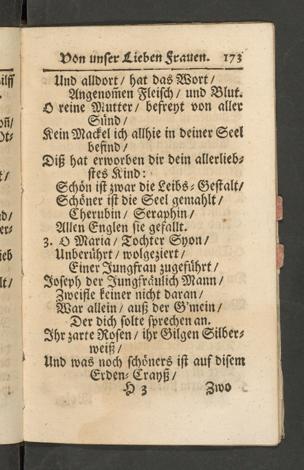 Von unser Lieben Frauen. 173
Und alldort / hat das Wort /
Angenom̃en Fleisch / und Blut.
O reine Mutter / befreyt von aller
Sünd /
Kein Mackel ich allhie in deiner Seel
befind /
Diß hat erworben dir dein allerlieb-
stes Kind:
Schön ist zwar die Leibs-Gestalt /
Schöner ist die Seel gemahlt /
Cherubin / Seraphin /
Allen Englen sie gefallt.
3. O Maria / Tochter Syon /
Unberührt / wolgeziert /
Einer Jungfrau zugeführt /
Joseph der Jungfräulich Mann /
Zweifle keiner nicht daran /
War allein / auß der G'mein /
Der dich solte sprechen an.
Ihr zarte Rosen / ihr Gilgen Silber-
weiß /
Und was noch schöners ist auf disem
Erden-Crayß /
H 3 Zwo